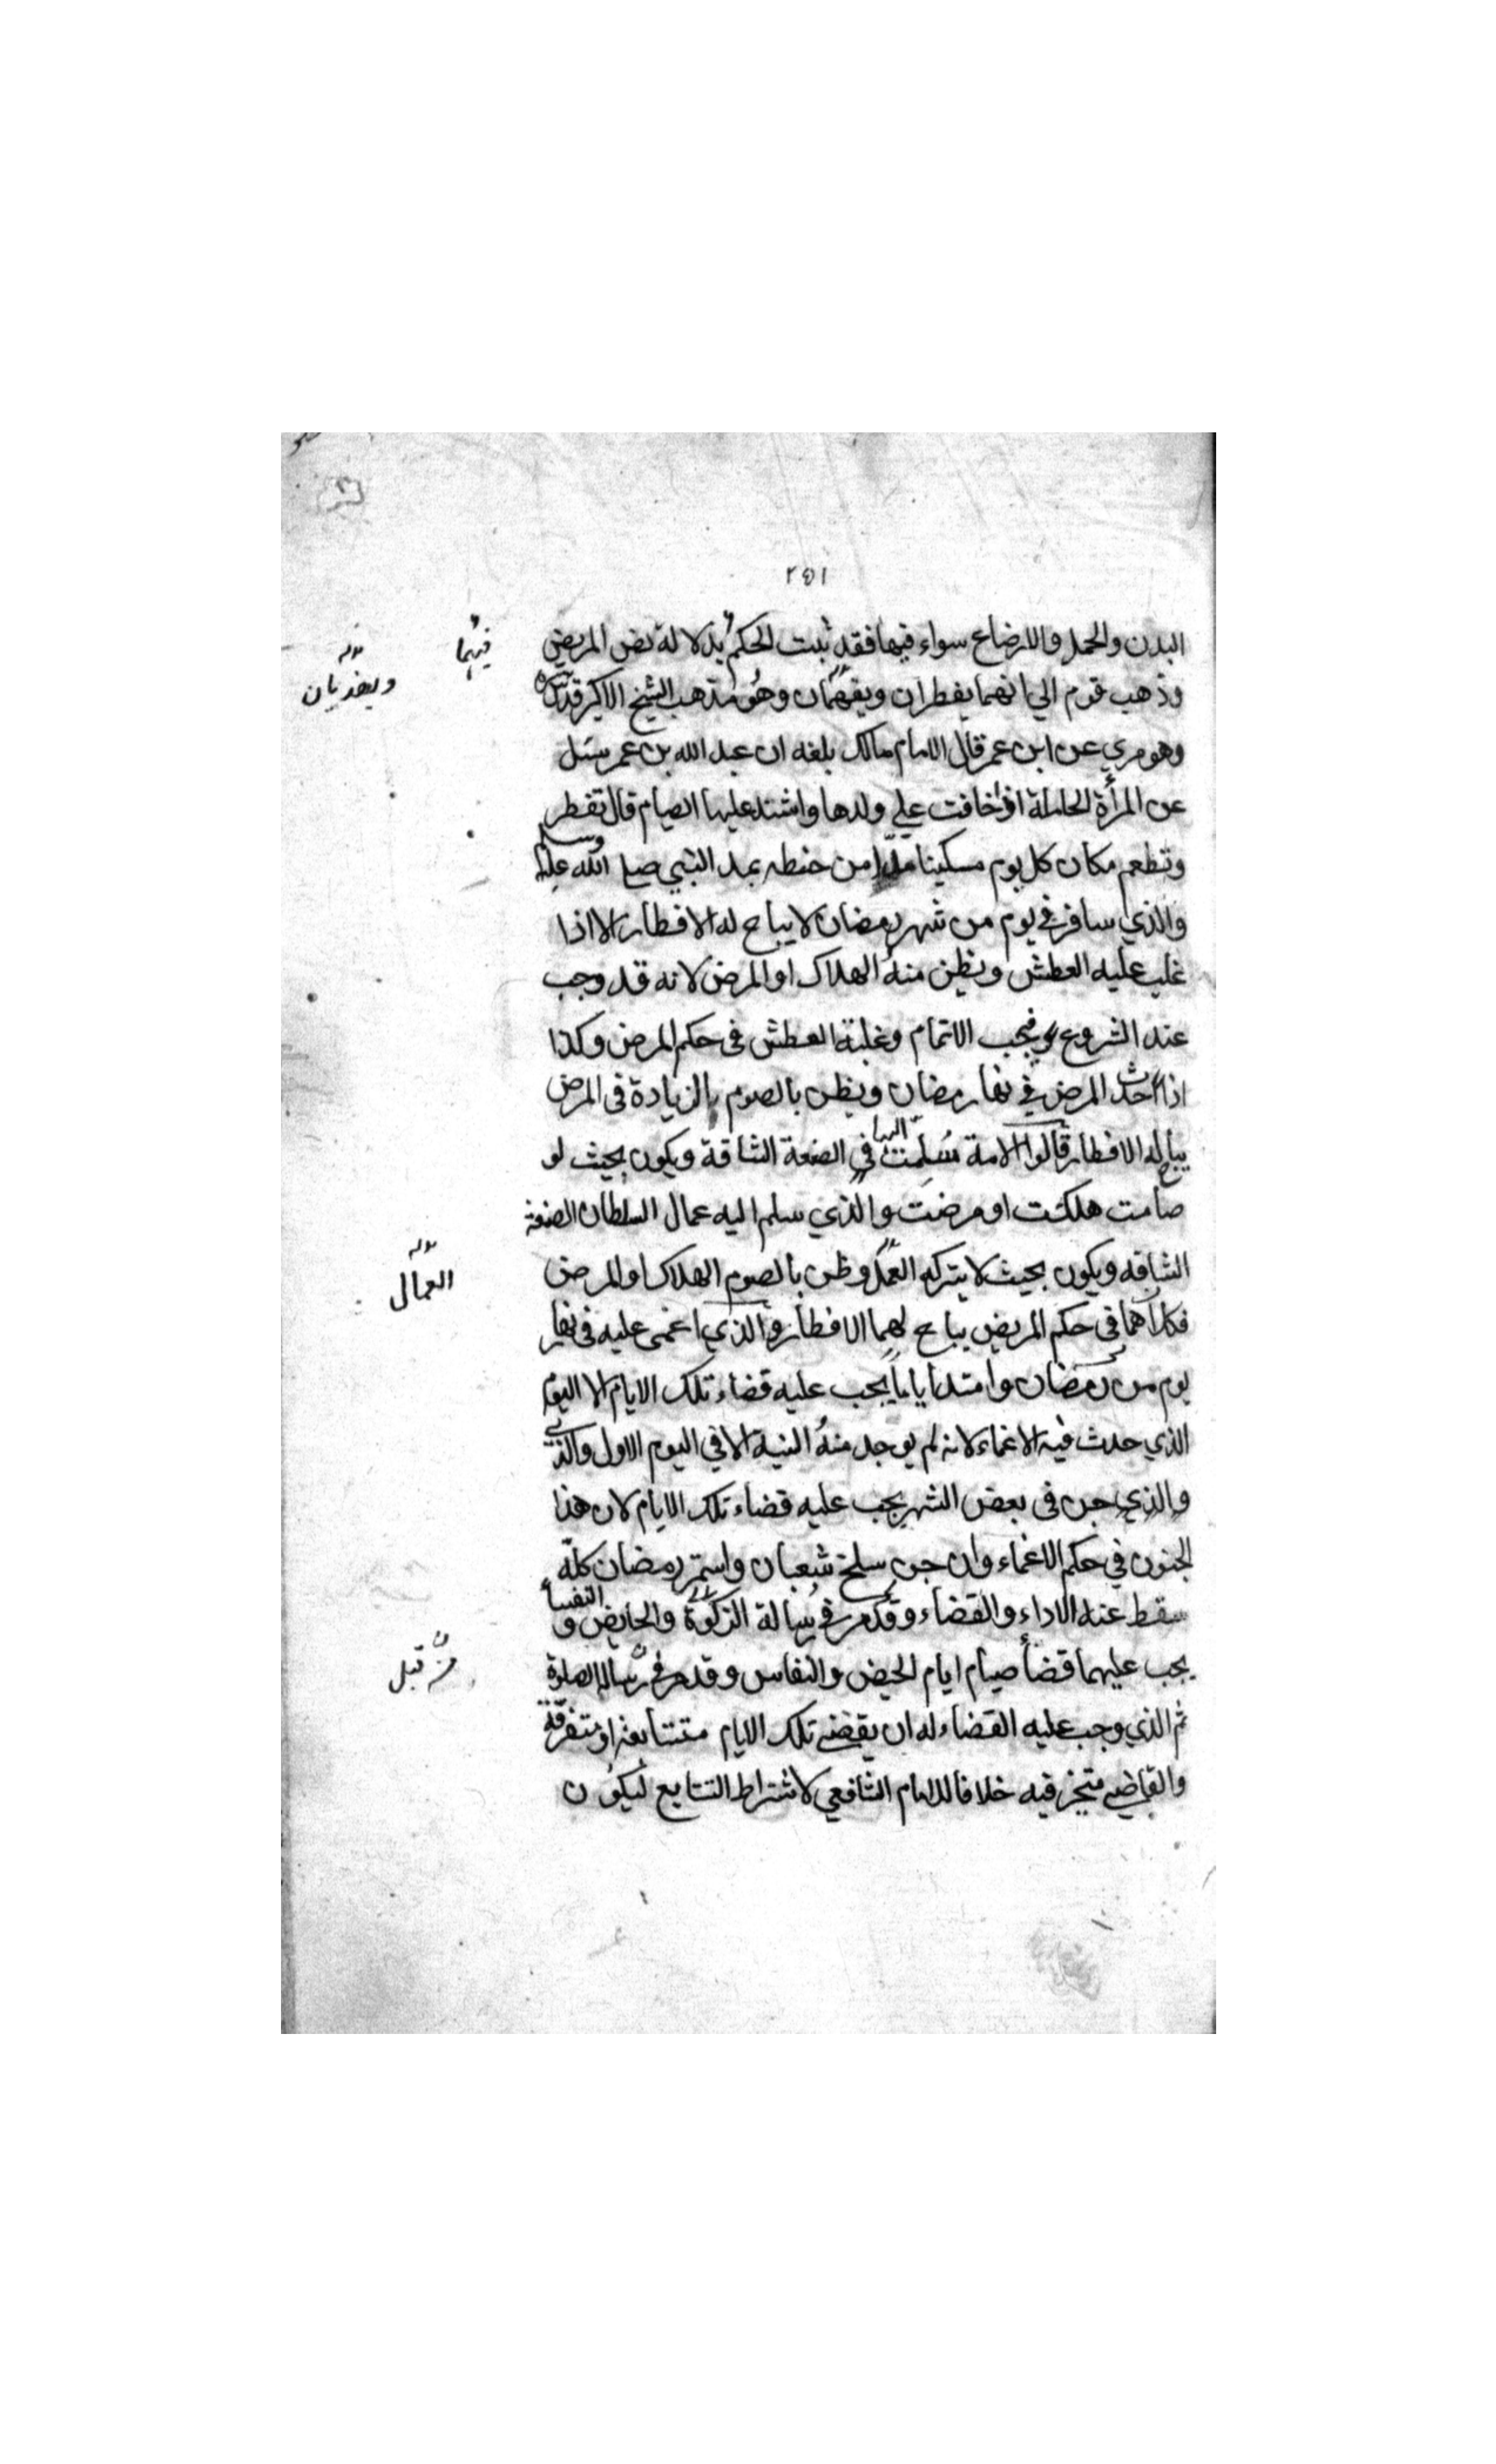 ٢٥١
البدن والحمل والارضاع سواء فيها فقد ثبت الحكم بدلالة نص المريض
فيهما
وذهب قوم الي انهما يفطران ويفهمان وهو مذهب الشيخ الاكبر قدس سره
ويفديان
وهو مروي عن ابن عمر قال الامام مالك بلغه ان عبد الله بن عمر سئل
عن المرأة الحاملة اذا خافت علي ولدها واشتد عليها الصيام قال تفطر
وتطعم مكان كل يوم مسكينا مدا من حنطه بمد النبي صلى الله عليه وسلم
والذي سافر في يوم من شهر رمضان لا يباح له الافطار الا اذا
غلب عليه العطش ويظن منه الهلاك او المرض لانه قد وجب
عند الشروع فيجب الاتمام وغلبة العطش في حكم المرض وكذا
اذا حدث المرض في نهار رمضان ويظن بالصوم الزيادة في المرض
يباح له الافطار قالوا الامة سُلِّمت اليها في الصنعة الشاقة ويكون بحيث لو
صامت هلكت او مرضت والذي سلم اليه عمال السلطان الصنعة
الشاقه ويكون بحيث لا يتركه العمل وظن بالصوم الهلاك او المرض
العمال
فكلاهما في حكم المريض يباح لهما الافطار والذي اغمى عليه في نهار
يوم من رمضان وامتد اياما يجب عليه قضاء تلك الايام الا اليوم
الذي حدث فيه الاغماء لانه لم يوجد منه النية الا في اليوم الاول والذي
والذي جن في بعض الشهر يجب عليه قضاء تلك الايام لان هذا
الجنون في حكم الاغماء وان جن سلخ شعبان واستمر رمضان كله
سقط عنه الاداء والقضاء وقد مر في رسالة الزكوة والحايض و النفسا
يجب عليهما قضأ صيام ايام الحيض والنفاس وقد مر في رسالة الصلوة
من قبل
ثم الذي وجب عليه القضاء له ان يقضي تلك الايام متتابعة او متفرقة
والقاضي متخير فيه خلافا للامام الشافعي لاشتراط التتابع ليكون